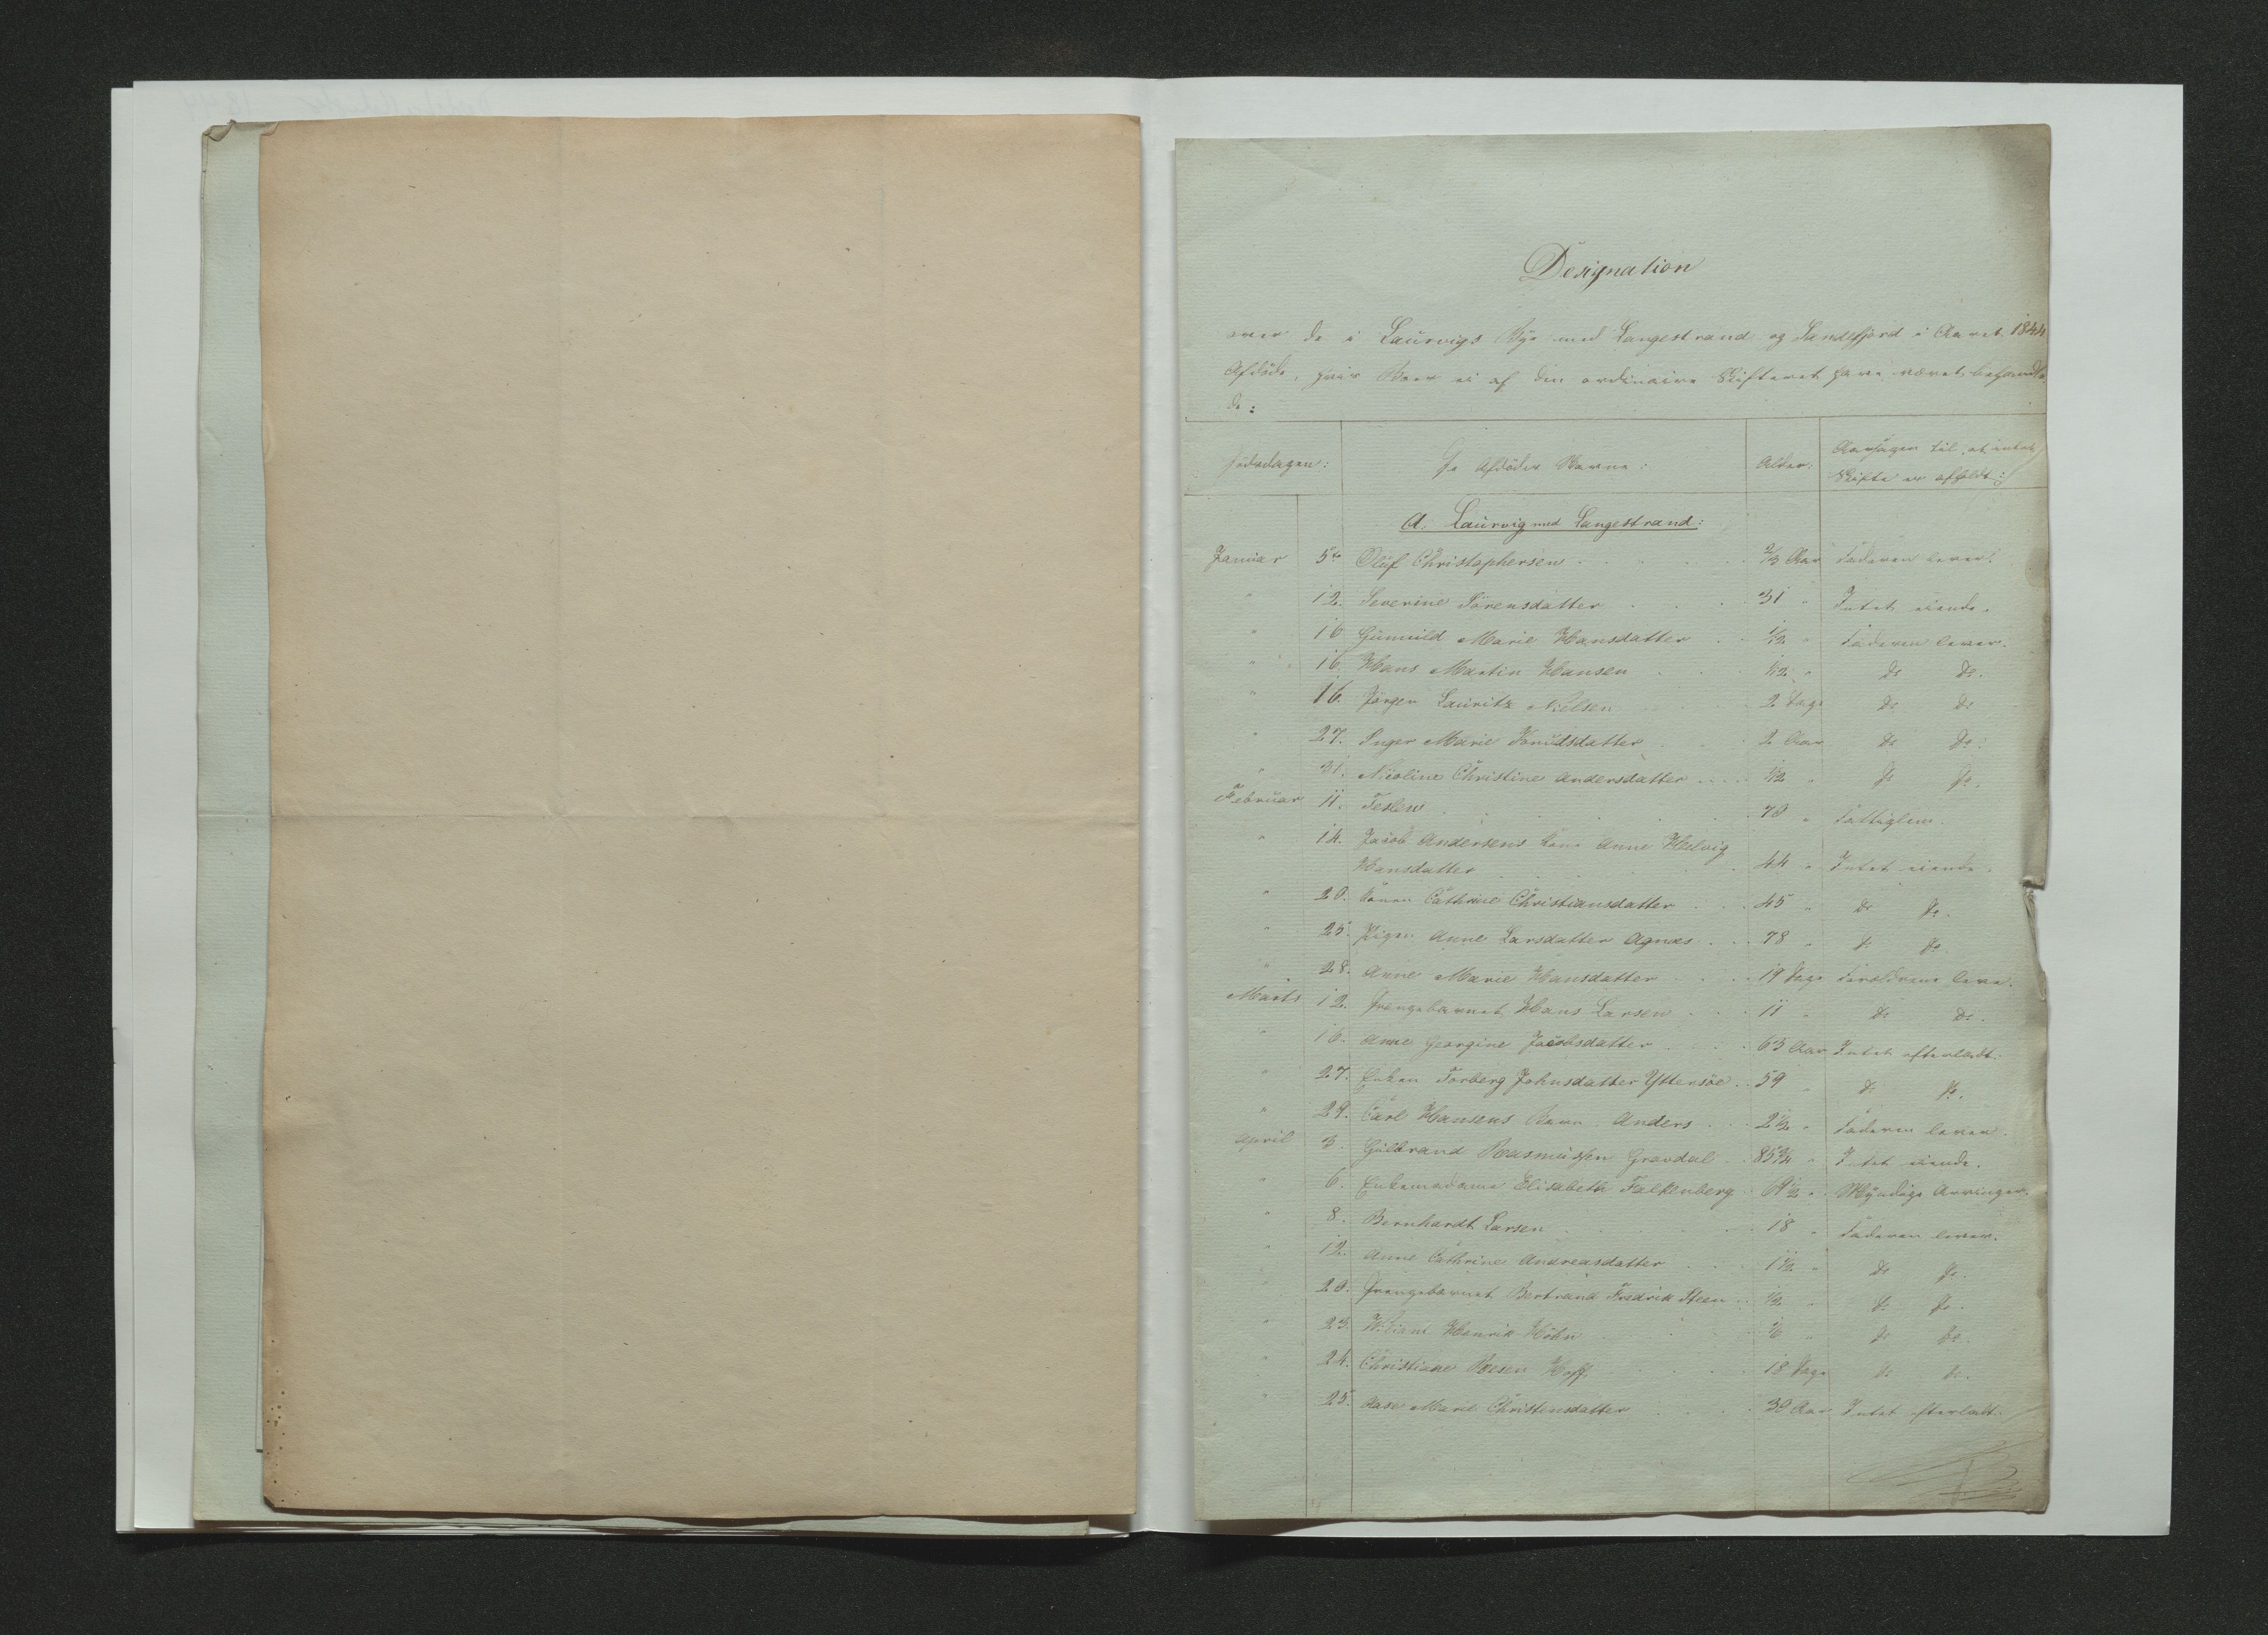 Designation
over de i Laurvigs Bye med Langestrand og Sandefjord i Aaret 1844
Afdöde, hvis Boer ei af den ordinaire Skifteret have været behandle
de:
Dödsdagen: De Afdödes Navne: Alder: Aarsagen til, at intet
Skifte er afholdt:
A. Laurvig med Langestrand:
Januar 5te Oluf Christophersen 2/3 Aar Faderen lever.
" 12. Severine Sörensdatter 31 " Intet eiende.
" 16 Gunnild Marie Hansdatter 1/12 " Faderen lever.
" 16. Hans Martin Hansen 1/12 " Do Do.
" 16. Jörgen Lauritz Nielsen 2 Dage Do Do
" 27. Inger Marie Knudsdatter 2 Aar Do Do.
" 31. Nicoline Christine Andersdatter 1/12 " Do Do.
Februar 11. Teslew 70 " Fattiglem.
" 14. Jacob Andersens Kone Anne Helvig
Hansdatter 44 " Intet eiende.
" 20. Konen Cathrine Christiansdatter 45 " Do Do.
" 25. Pigen Anne Larsdatter Agnæs 78 " Do Do.
" 28. Anne Marie Hansdatter 19 Dage Forældrene leve.
Marts 12. Drengebarnet Hans Larsen 11 " Do Do.
" 16. Anne Georgine Jacobsdatter 63 Aar Intet efterladt.
" 27. Enken Torberg Johnsdatter Yttersöe 59 " Do Do.
" 29. Carl Hansens Barn Anders 2 1/2 " Faderen lever.
April 3. Guldbrand Rasmussen Gravdal 85 3/4 " Intet eiende.
" 6. Enkemadame Elisabeth Falkenberg 64 1/2 " Myndige Arvinger.
" 8. Bernhardt Larsen 18 " Faderen lever.
" 12. Anne Cathrine Andreasdatter 1 1/2 " Do Do.
" 20. Drengebarnet Bertrand Fredrik Steen 1/2 " Do Do.
" 23. William Henrik Höhn 1/6 " Do Do.
" 24. Christiane Boesen Hoff 18 Dage Do Do.
" 25. Aase Marie Christensdatter 30 Aar Intet efterladt.